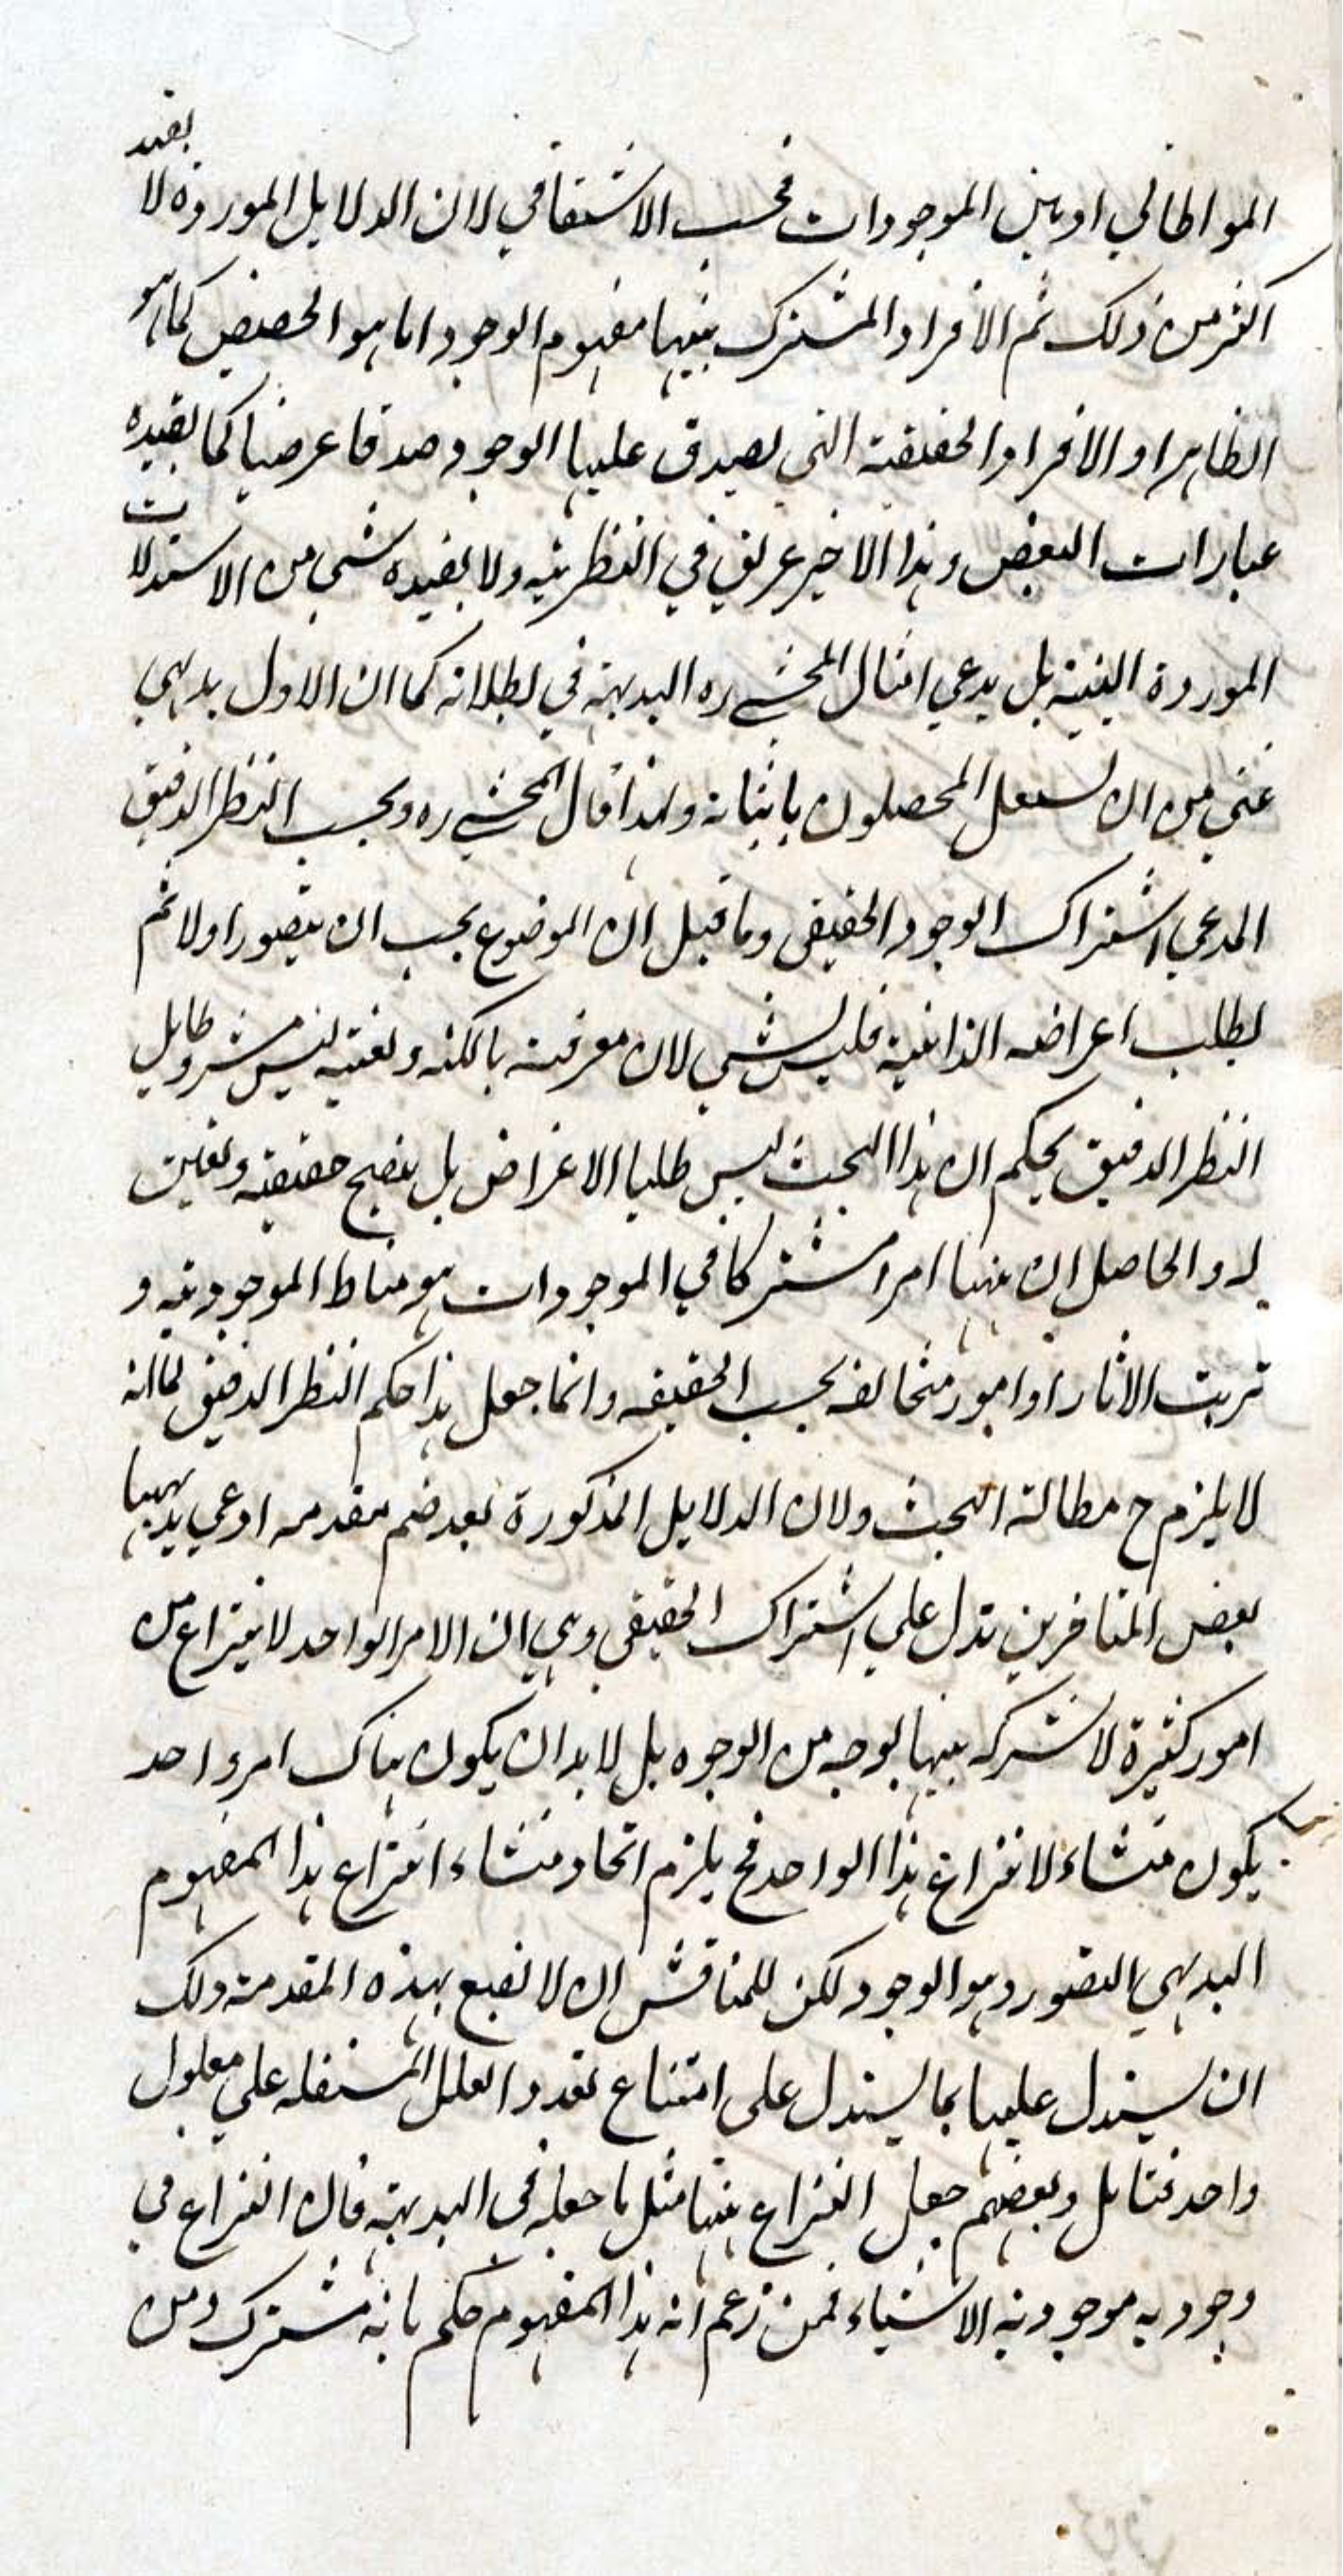 المواطاتي او بين الموجودات فبحسب الاشتقاقي لان الدلايل الموردة لا يفيد
اكثر من ذلك ثم الافراد المشترك بينها مفهوم الوجود اما هو الحصص كما هو
الظاهر او الافراد الحقيقية التي يصدق عليها الوجود صدقا عرضيا كما يفيده
عبارات البعض وهذا الاخير عريق في النظرية ولا يفيده شي من الاستدلالات
الموردة البتة بل يدعي امثال المحشي ره البديهة في بطلانه كما ان الاول بديهي
غني من ان يشتغل المحصلون باثباته ولهذا قال المحشي ره وبحسب النظر الدقيق
المدعي اشتراك الوجود الحقيقي وما قيل ان الموضوع يجب ان يتصور اولا ثم
يطلب اعراضه الذاتية فليس بشي لان معرفته بالكنه وتعينه ليس بشرط بل
النظر الدقيق يحكم ان هذا البحث ليس طلبا الاعراض بل تنقيح حقيقته وتعيين
له والحاصل ان ههنا امرا مشتركا في الموجودات هو مناط الموجودية و
ترتب الاثار او امور متخالفه بحسب الحقيقه وانما جعل هذا حكم النظر الدقيق لما انه
لا يلزم ح مطالة البحث ولان الدلايل المذكورة بعد ضم مقدمه ادعي بديهيتها
بعض المتاخرين تدل علي اشتراك الحقيقي وهي ان الامر الواحد لا ينتزاع من
امور كثيرة لا شركه بينها بوجه من الوجوه بل لا بد ان يكون هناك امر واحد
يكون منشاء لانتزاع هذا الواحد فح يلزم اتحاد منشاء انتزاع هذا المفهوم
البديهي التصور وهو الوجود لكن للمناقش ان لا يقنع بهذه المقدمة ولك
ان يستدل عليها بما يستدل على امتناع تعدد العلل المستقله علي معلول
واحد فتامل وبعضهم جعل النزاع ههنا مثل ما جعله في البديهة فان النزاع في
وجود به موجودية الاشياء فمن زعم انه هذا المفهوم حكم بانه مشترك ومن